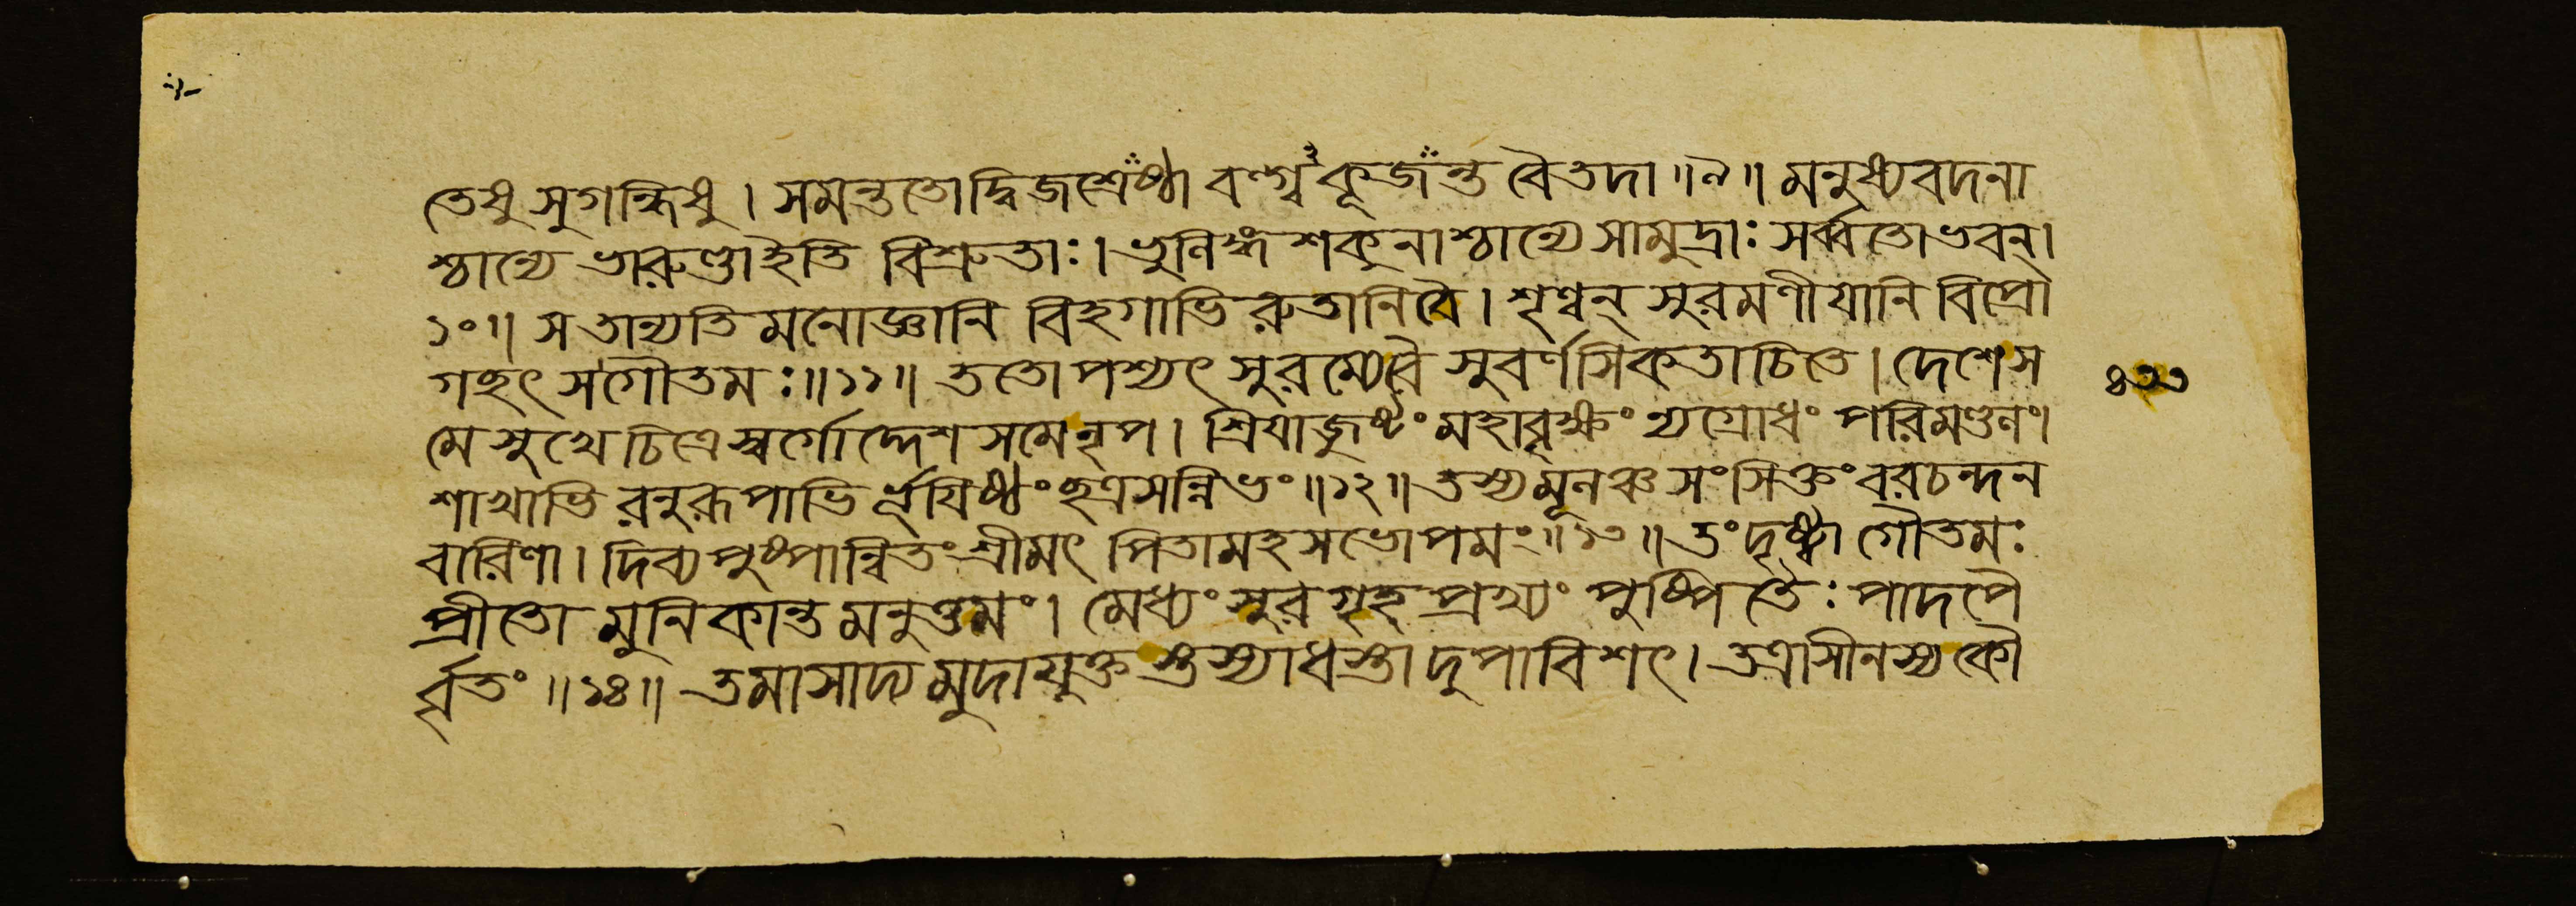 তেষু সুগন্ধিষু । সমন্ততোদ্বিজশ্রেষ্ঠা বল্গু কূজন্ত বৈতদা ॥৯॥ মনুষ্যবদনা
শ্চান্যে ভারুণ্ডাইতি বিশ্রুতাঃ । ভুলিঙ্গ শকুনাশ্চান্যে সামুদ্রাঃ সর্ব্বতোভবন্ ।
১০॥ স তান্যতিমনোজ্ঞানি বিহগাভিরুতানিবৈ । শৃণ্বন্ সুরমণীযানি বিপ্রো
গছৎ সগৌতমঃ ॥১১॥ ততোপশ্যৎ সুরম্যেবৈ সুবর্ণসিকতাচিতে । দেশেস
মে সুখে চিত্রে স্বর্গোদ্দেশসমেনৃপ । শ্রিযাজুষ্টং মহাবৃক্ষং ন্যগ্রোধং পরিমণ্ডলং ।
শাখাভিরনুরূপাভির্ভূযিষ্ঠং ছত্রসন্নিভং ॥১২॥ তস্যমূলঞ্চ সংসিক্তং বরচন্দন
বারিণা । দিব্যপুষ্পান্বিতং শ্রীমৎ পিতামহসভোপমং ॥১৩॥ তং দৃষ্ট্বা গৌতমঃ
প্রীতো মুনিকান্তমনুত্তমং । মেধ্যং সুরগৃহপ্রখ্যং পুষ্পিতৈঃ পাদপৈ
র্ব্বৃতং ॥১৪॥ তমাসাদ্য মুদাযুক্ত স্তস্যাধস্তাদুপাবিশৎ । তত্রাসীনস্যকৌ